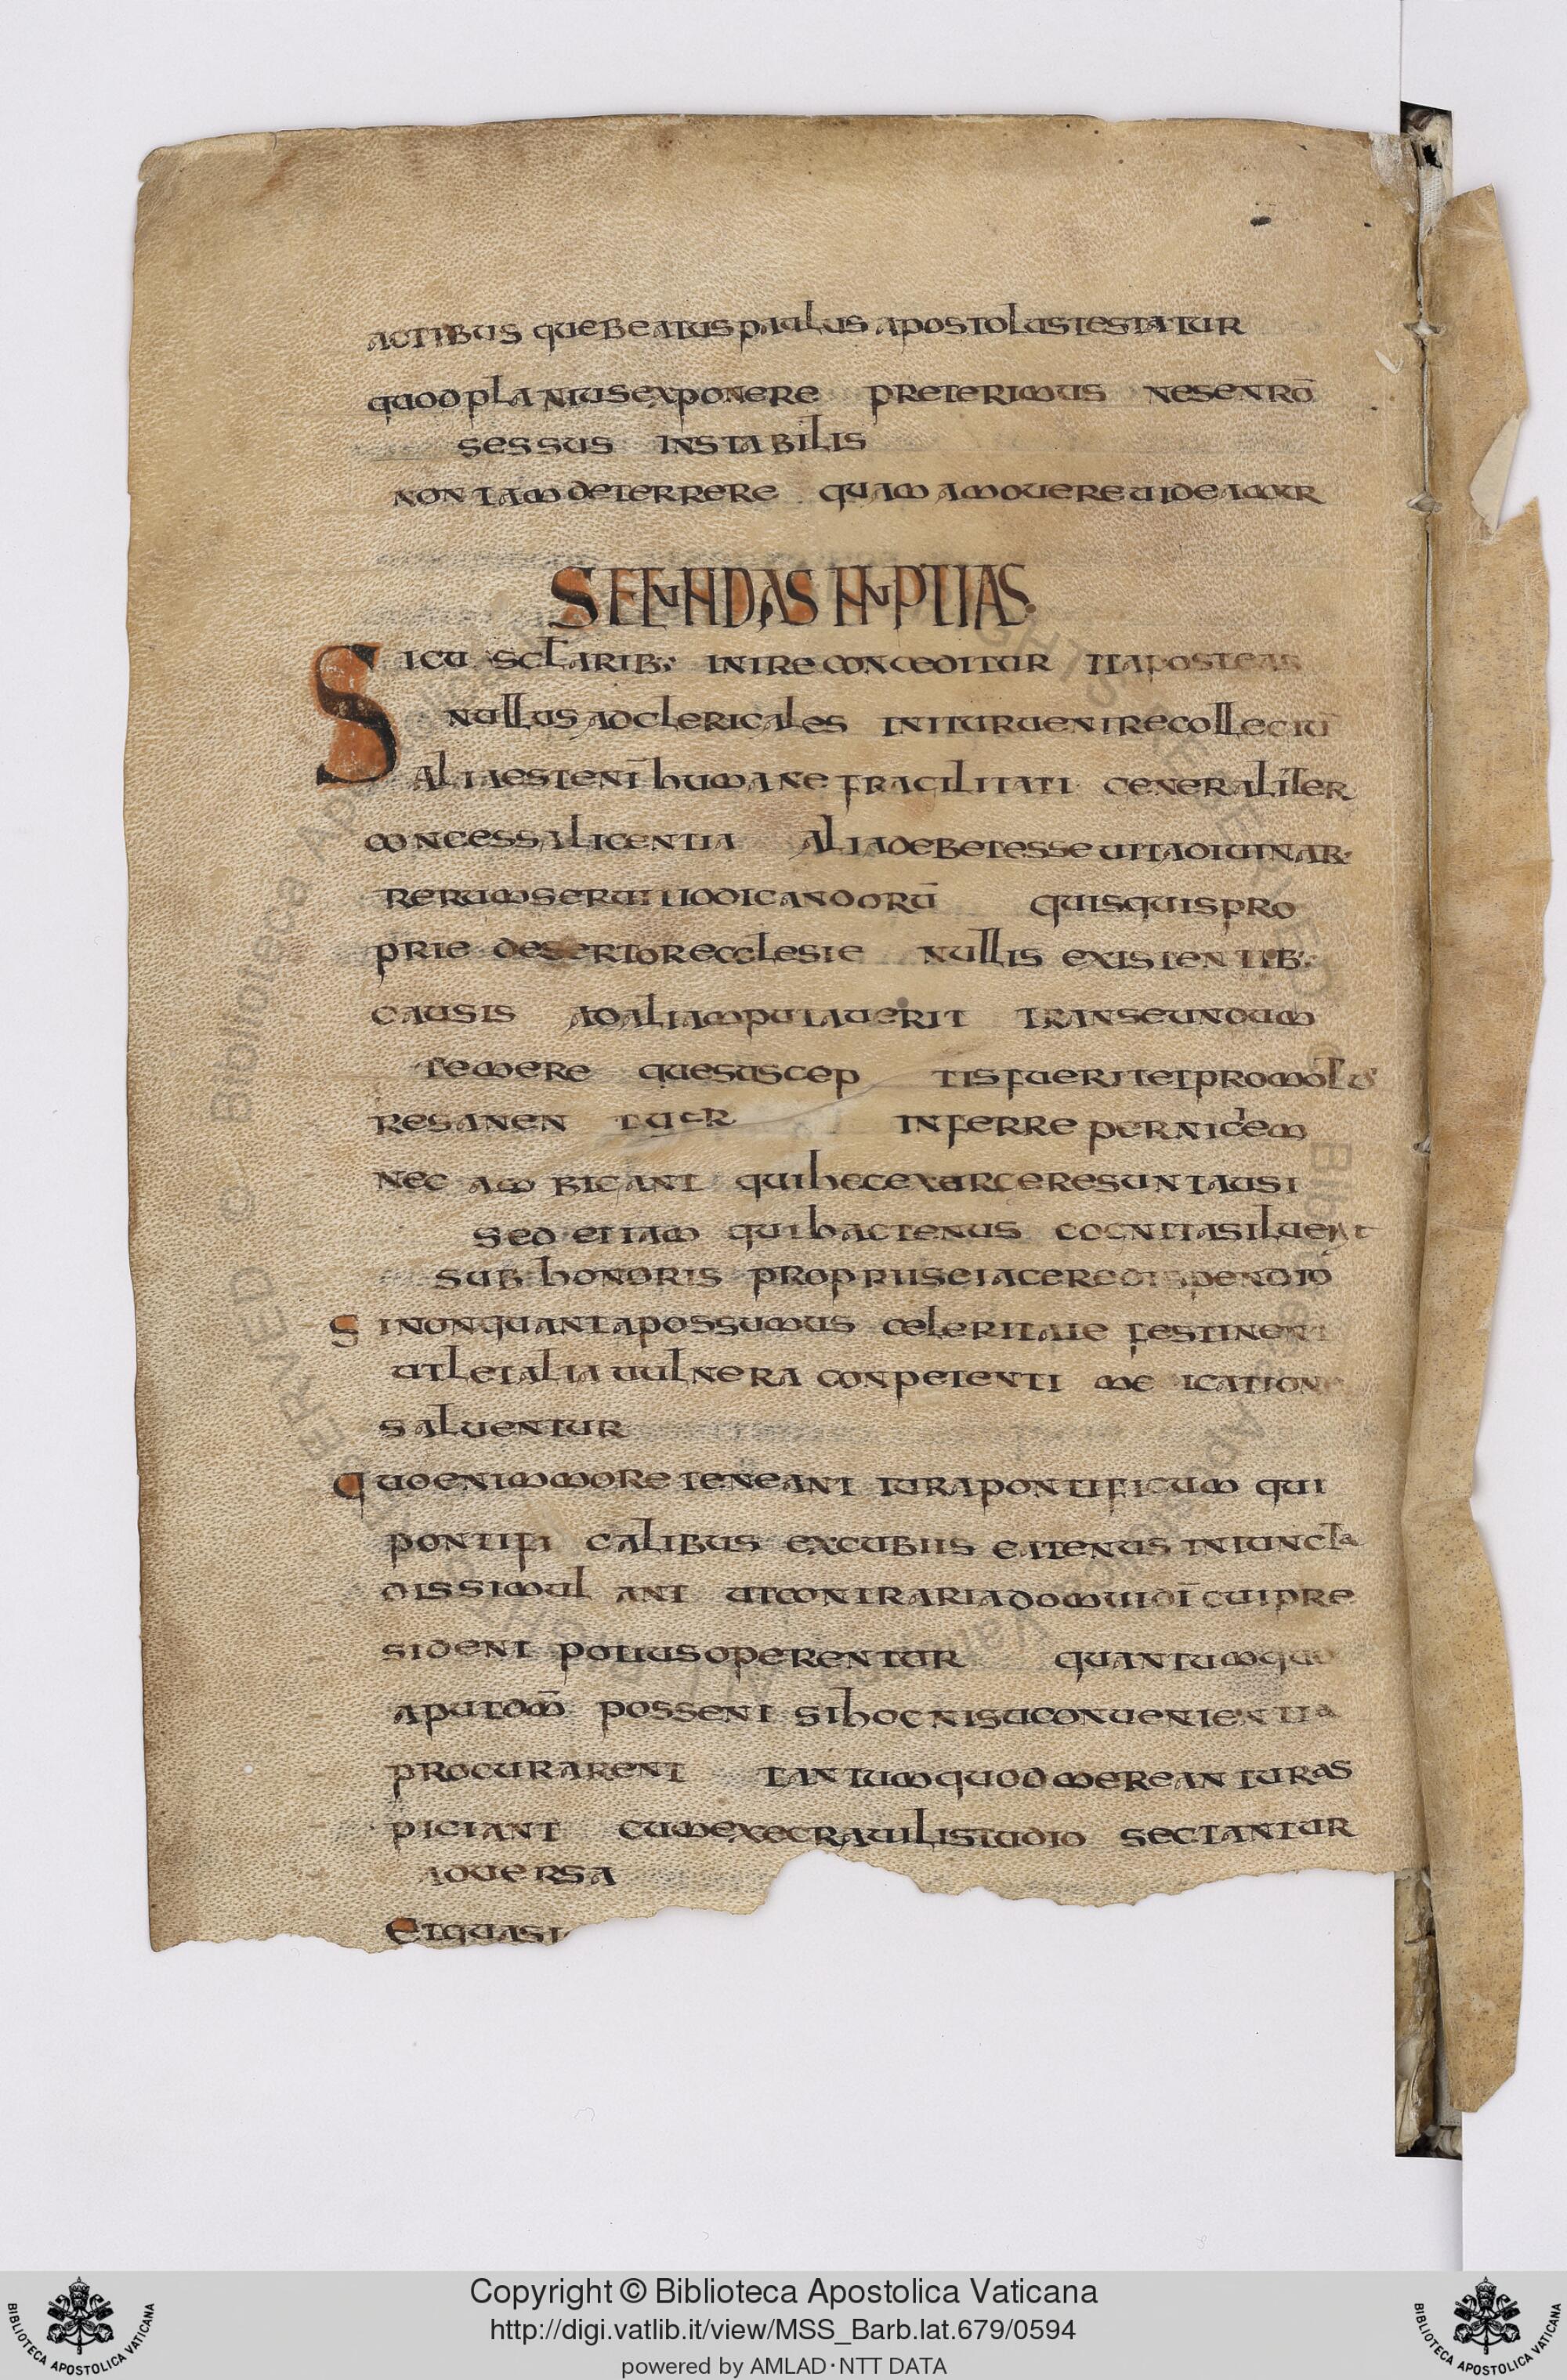 actibus que beatus paulus apostolus testatur
quod planius exponere preterimus ne senrō
sessus instabilis
non tam deterrere quam amouere uideamur
SECUNDAS NUPTIAS.
Sicu sclarib; inire conceditur ita post eas
nullus ad clericales initur uenire collectū
alia est enī humane fragilitati generaliter
concessa licentia alia debet esse uita diuinar;
rerum serui dicandorū quisquis pro
prie desertor ecclesie nullis existentib;
causis ad aliam putauerit transeundum
temere que suscep tis fuerit et promotus
resanen tur inferre perniciem
nec ambigant qui hec exercere sunt ausi
sed etiam qui hactenus cognita siluerit
sub honoris proprii se iacere dispendio
Si non quanta possumus celeritate festinent
ut letalia uulnera conpetenti me icatione
saluentur
Quo enim more teneant iura pontificum qui
pontifi calibus excubiis eatenus iniuncta
dissimul ant ut contraria domui dī cui pre
sident potius operentur quantumquo
aput dm̄ possent si hoc nisu conuenientia
procurarent tantum quod mereantur as
piciant cum execrauili studio sectantur
aduersa
Et quasi
Copyright © Biblioteca Apostolica Vaticana
http://digi.vatlib.it/view/MSS_Barb.lat.679/0594
powered by AMLAD·NTT DATA
BIBLIOTECA APOSTOLICA VATICANA
BIBLIOTECA APOSTOLICA VATICANA